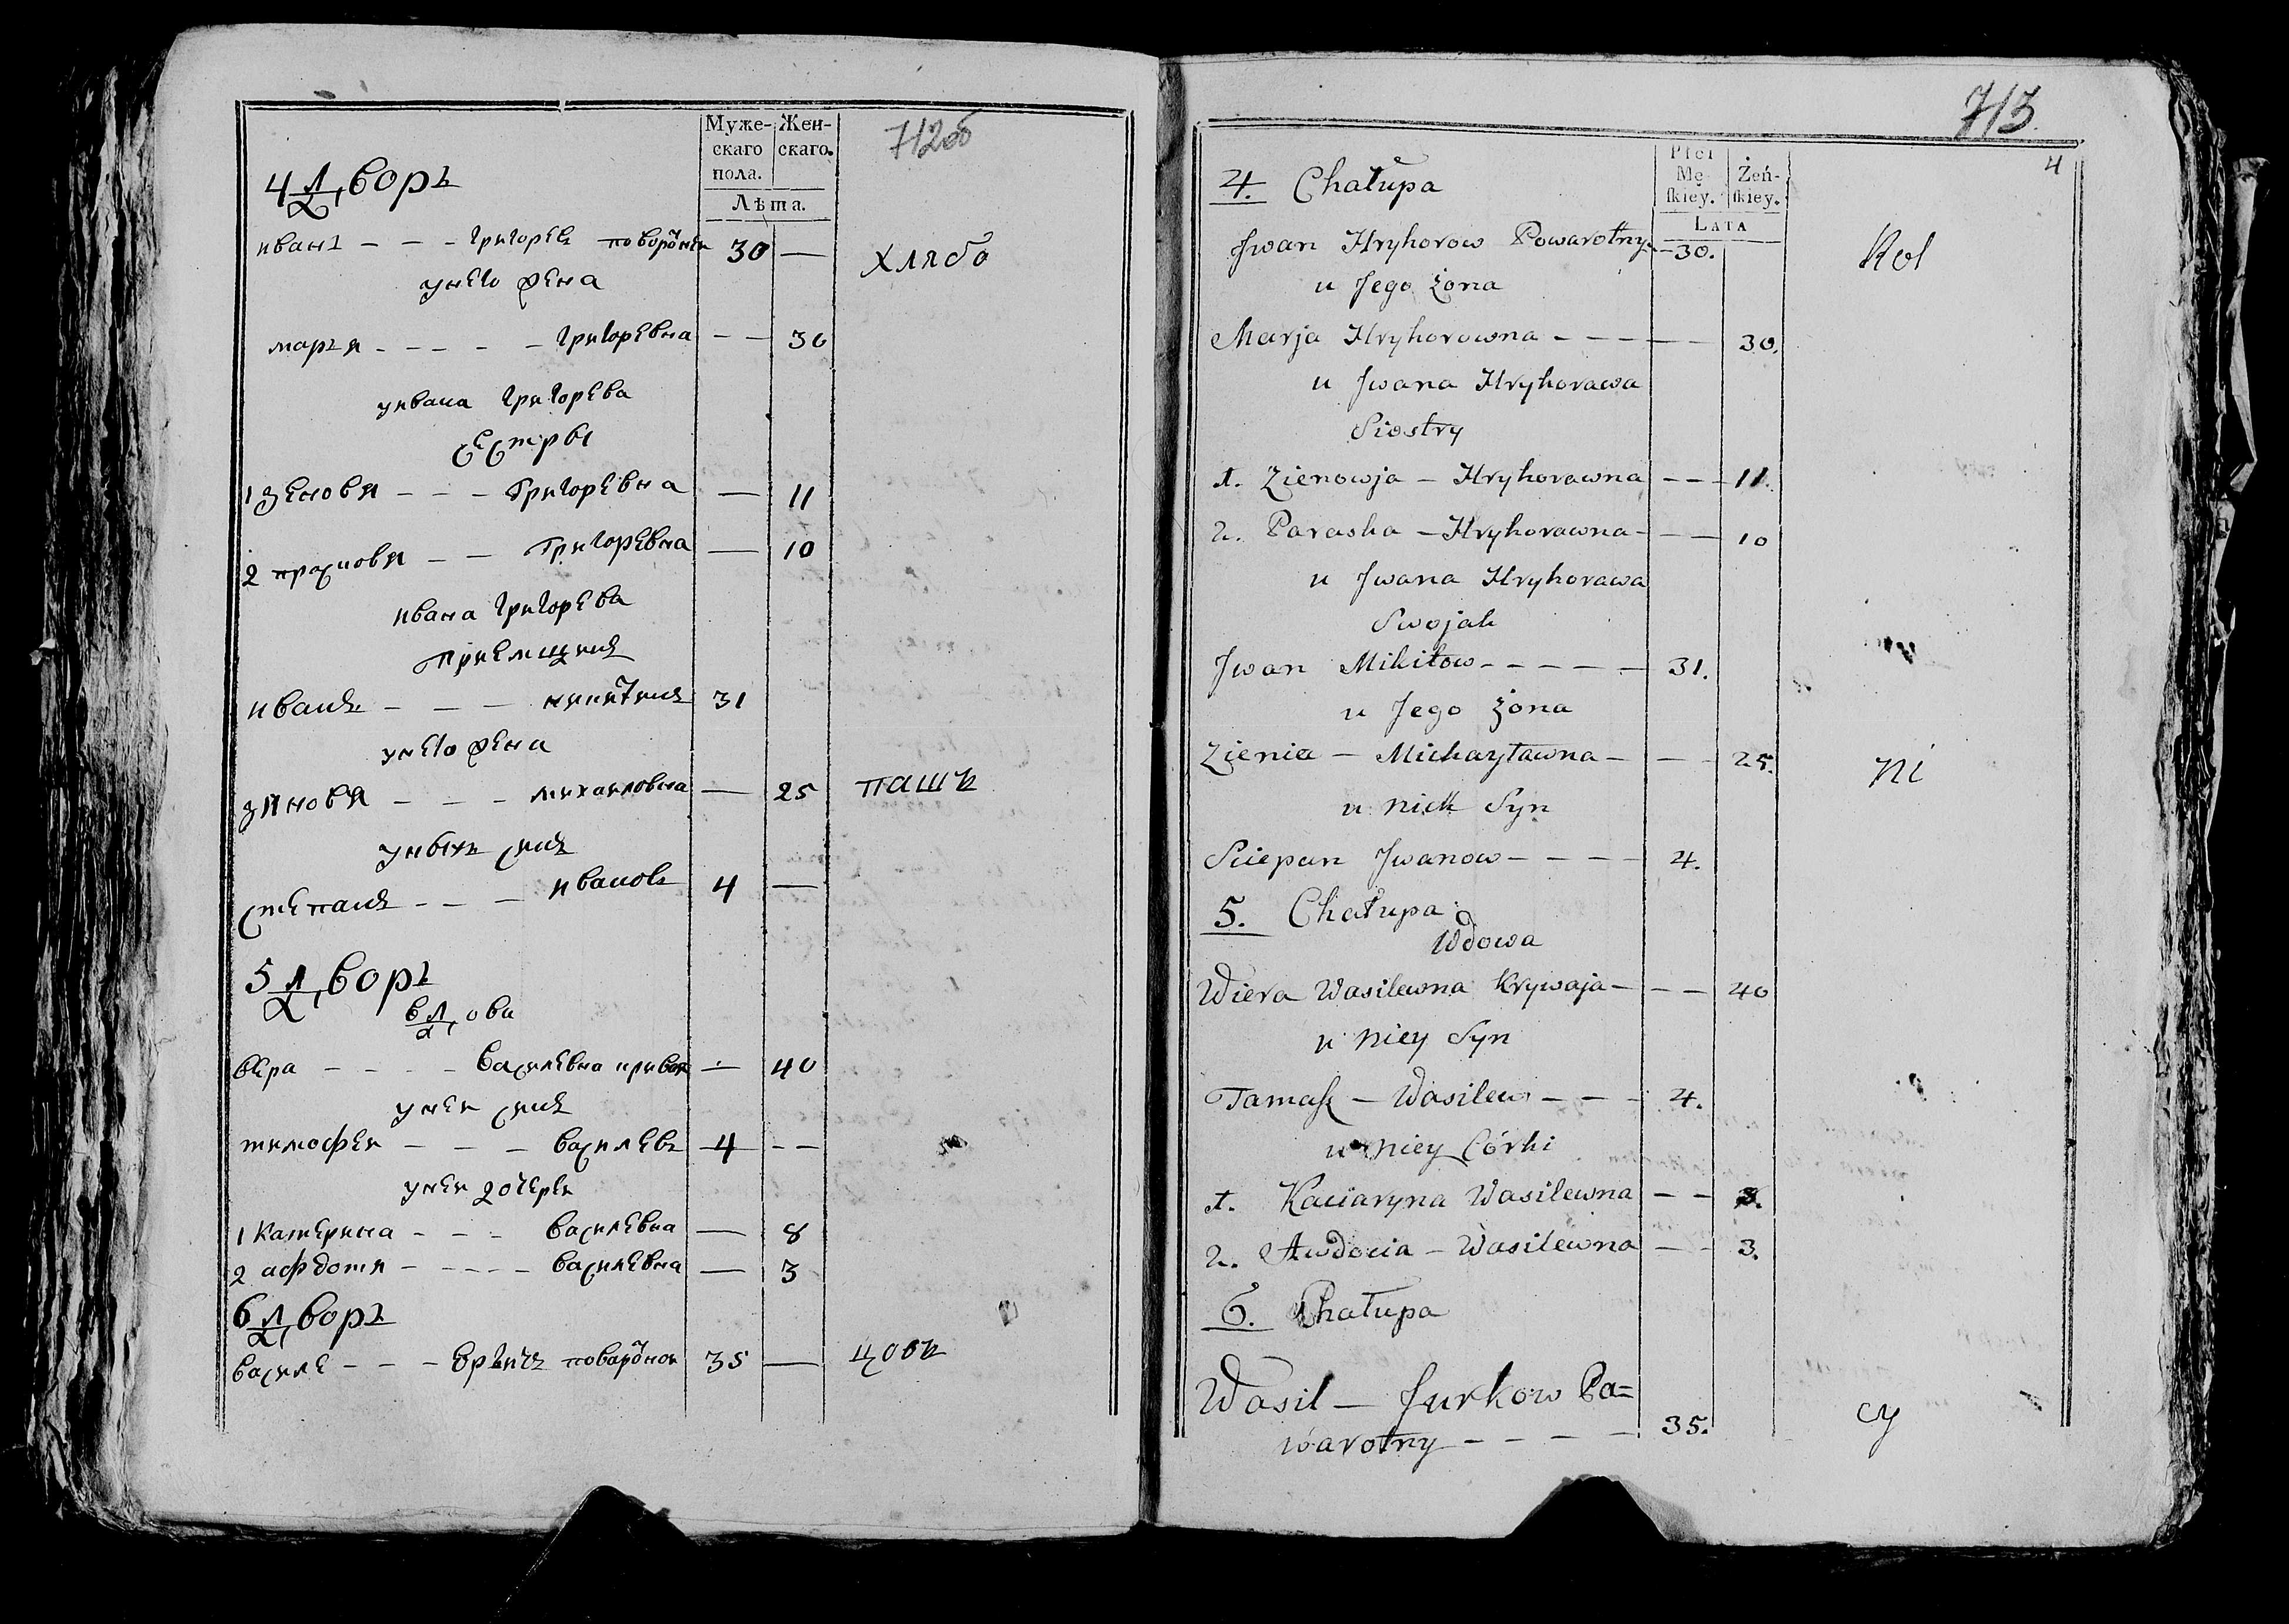 Муже-
скаго
пола.
Жен-
скаго.
Лѣта.
712об
4 Дворъ
иванъ - - - григоревъ поворотнеи 30 —
хлябо
унего жена
маръя - - - - - григоревна - - 30
уивана григорева
сестры
1 зеновя - - - григоревна — 11
2 прасковя - - григоревна — 10
ивана григорева
приемщикъ
иванъ - - - никитинъ 31
унего жена
зиновя - - - михаиловна — 25
пашъ
уныхъ синъ
степанъ - - - ивановъ 4 —
5 Дворъ
вдова
вера - - - - василевна кривая — 40
унеи синъ
тимофеи - - - василевъ 4 - -
унеи дочери
1 катерина - - - василевна — 8
2 афдотя - - - - василевна — 3
6 Дворъ
василе - - - поваротнои 35 —
цовъ
713.
4
Płci
Mę-
skiey.
Żeń-
skiey.
LATA
4. Chałupa
Jwan Hryhorow Powarotny - 30.
Rol
u Jego żona
Marja Hryhorowna - - - - - 30.
u Jwana Hryhorawa
Siostry
1. Zienowja - Hryhorawna - - - 11.
2. Paraska - Hryhorawna - - - 10
u Jwana Hryhorawa
Swojak
Jwan Mikitow - - - - - 31.
u Jego żona
Zienia - Michayławna - - - 25.
ni
u nich Syn
Sciepan Jwanow - - - - 4.
5. Chałupa
Wdowa
Wiera Wasilewna Krywaja - - - 40
u niey Syn
Tamasz - Wasilew - - - 4.
u niey Córki
1. Kaciaryna Wasilewna - - 8.
2. Awdocia - Wasilewna - - 3.
6. Chałupa
Wasil - Jurkow Pa=
warotny - - - - 35.
cy